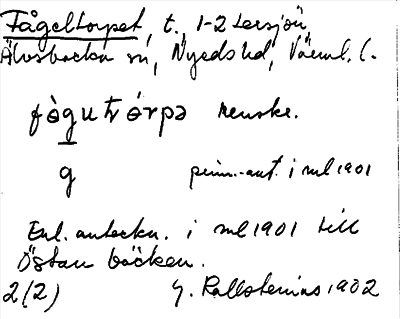 Fågeltorpet, t. 1-2 Lersjön
Älvsbacka sn, Nyeds hd, Värml. l.
fògutórpə kenske.
g penn.-ant. i ml 1901
Enl. anteckn. i ml 1901 till
Östan bäcken.
2(2) G. Kallstenius 1902